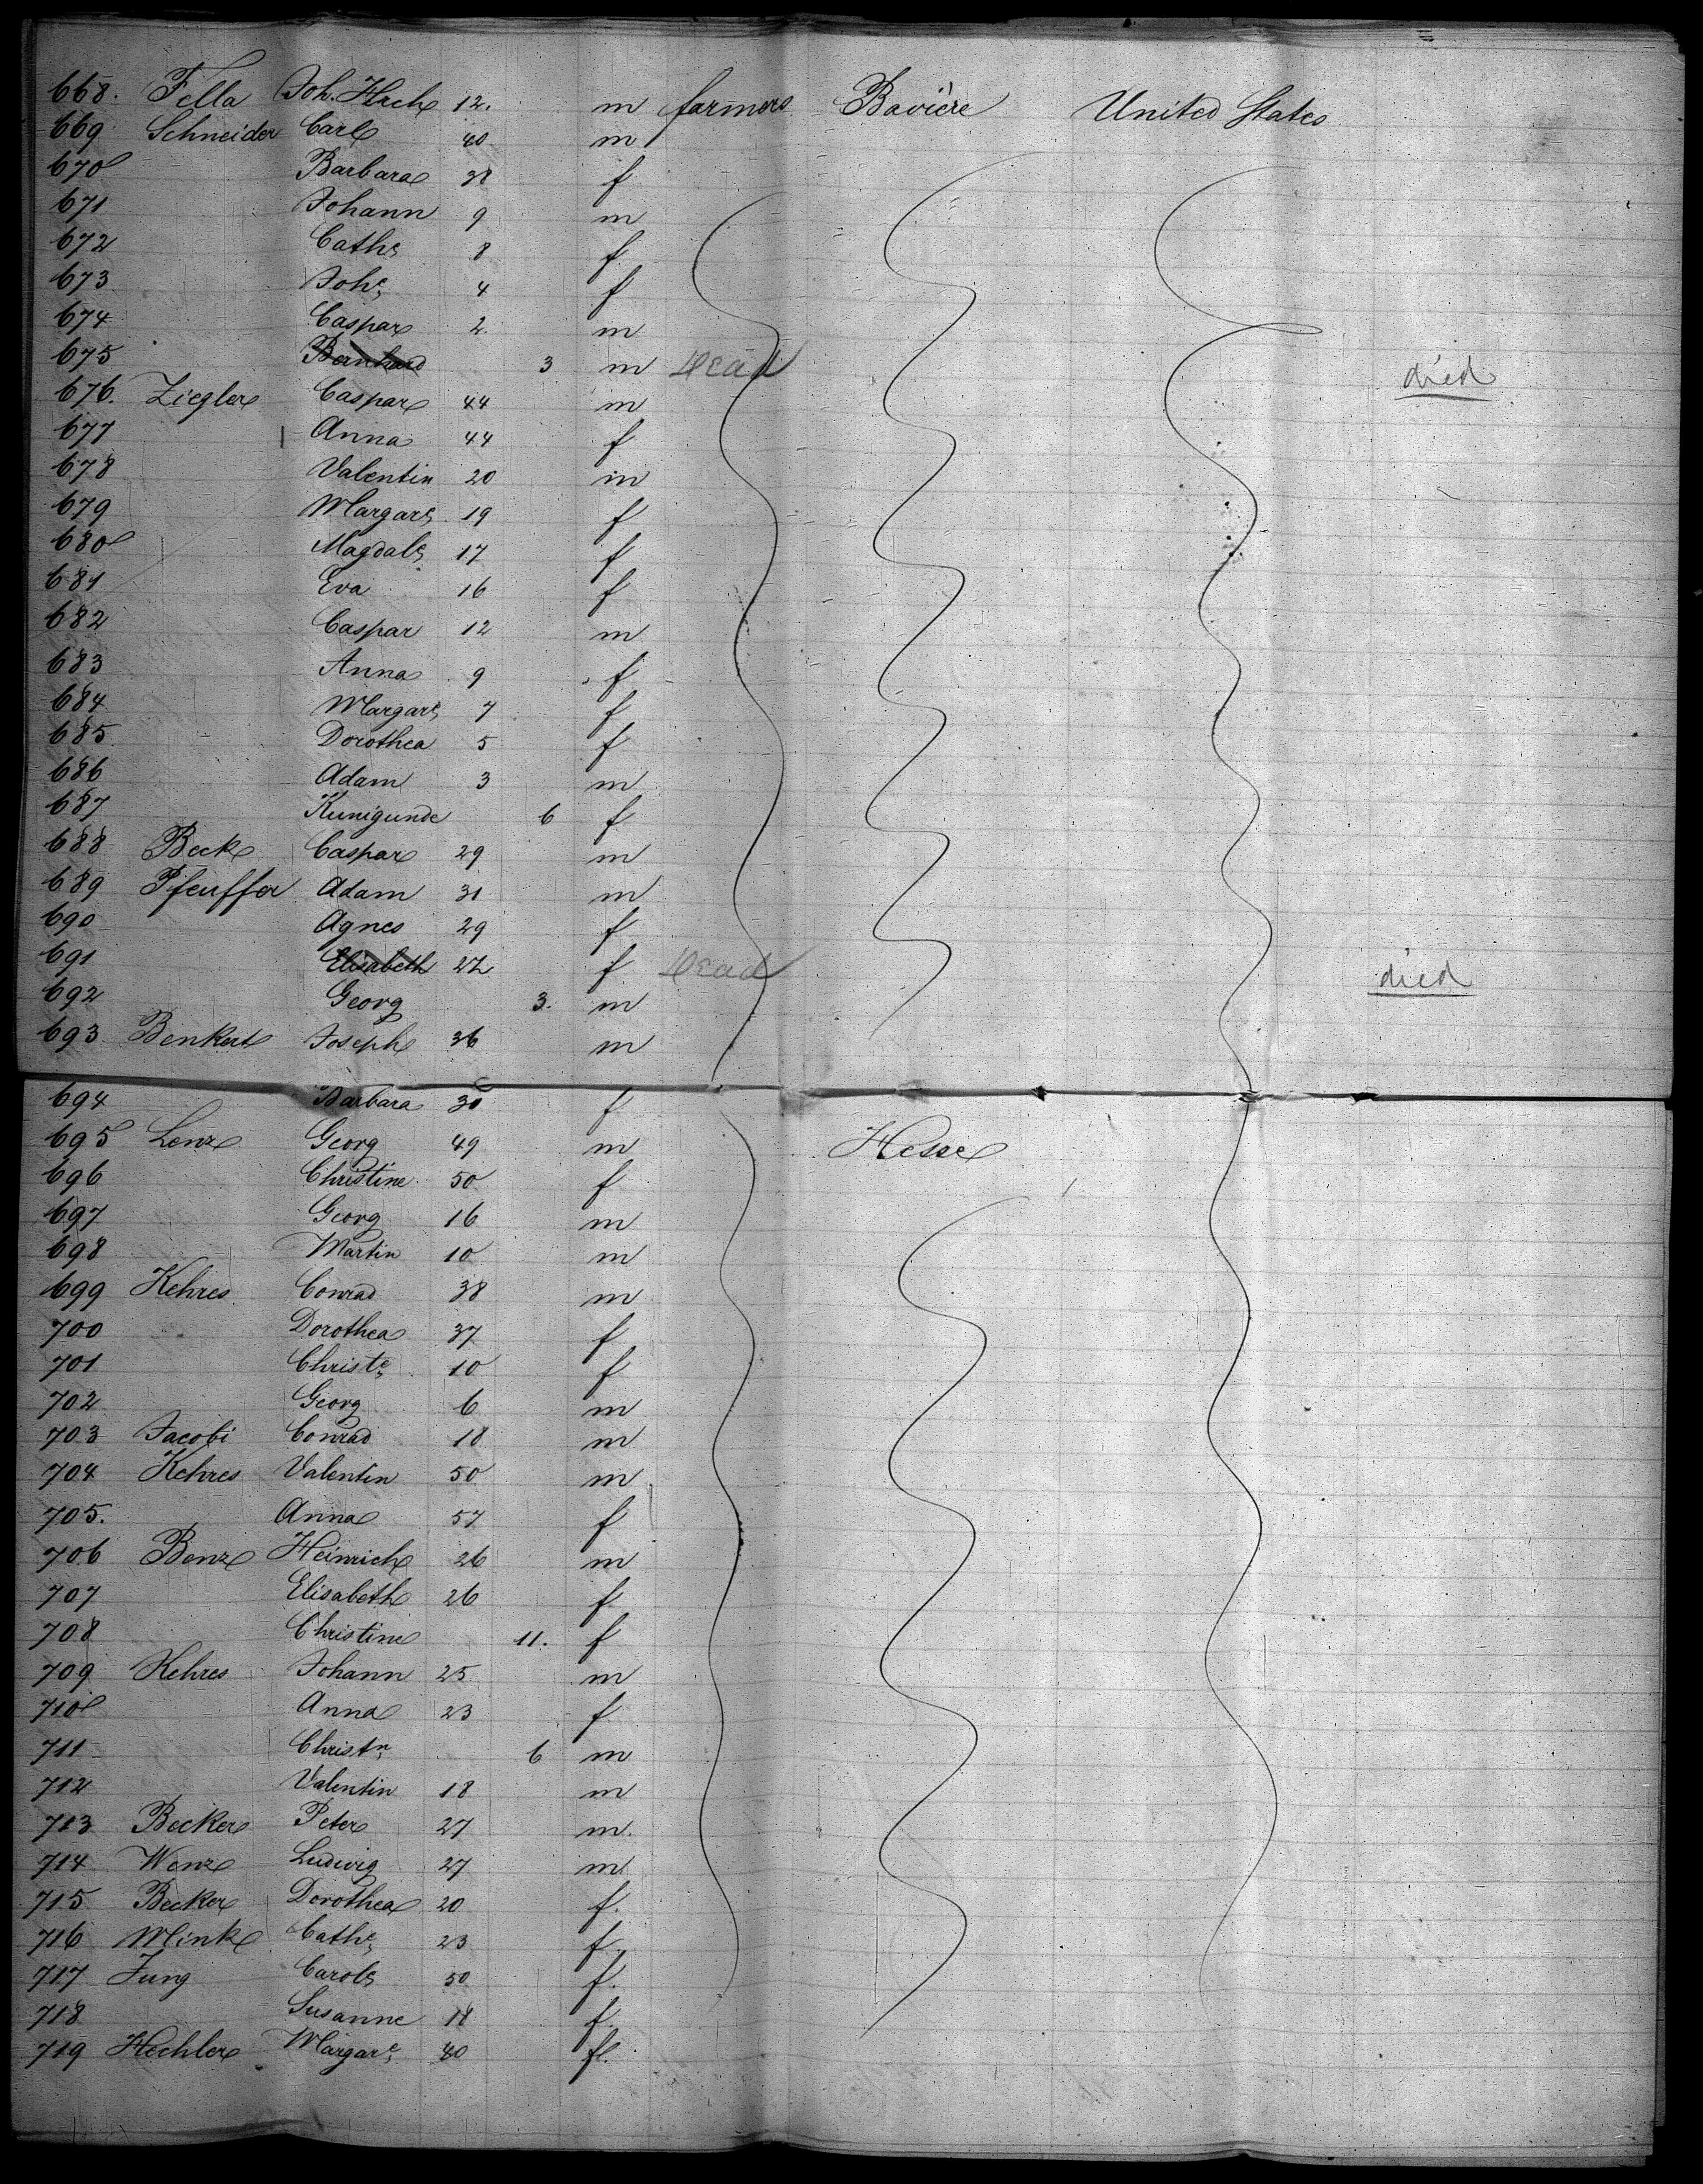 668. Fella Joh. Hrch 12. m farmers Bavière United States
669 Schneider Carl 40 m
670 Barbara 38 f
671 Johann 9 m
672 Cathe 8 f
673 Johe 4 f
674 Caspar 2 m
675 Bernhard 3 m Dead died
676. Ziegler Caspar 44 m
677 Anna 44 f
678 Valentin 20 m
679 Margare 19 f
680 Magdale 17 f
681 Eva 16 f
682 Caspar 12 m
683 Anna 9 f
684 Margare 7 f
685 Dorothea 5 f
686 Adam 3 m
687 Kunigunde 6 f
688 Beck Caspar 29 m
689 Pfeuffer Adam 31 m
690 Agnes 29 f
691 Elisabeth f Dead died
692 Georg 3. m
693 Benkert Joseph 36 m
694 Barbara 30 f
695 Lenz Georg 49 m Hesse
696 Christine 50 f
697 Georg 16 m
698 Martin 10 m
699 Kehres Conrad 38 m
700 Dorothea 37 f
701 Christe 10 f
702 Georg 6 m
703 Jacobi Conrad 18 m
704 Kehres Valentin 50 m
705. Anna 57 f
706 Benz Heinrich 26 m
707 Elisabeth 26 f
708 Christine 11. f
709 Kehres Johann 25 m
710 Anna 23 f
711 Christn 6 m
712 Valentin 18 m
713 Becker Peter 27 m.
714 Wenz Ludwig 27 m
715 Becker Dorothea 20 f.
716 Mink Cathe 23 f.
717 Jung Carole 50 f.
718 Susanne 18 f.
719 Hechler Margare 40 f.